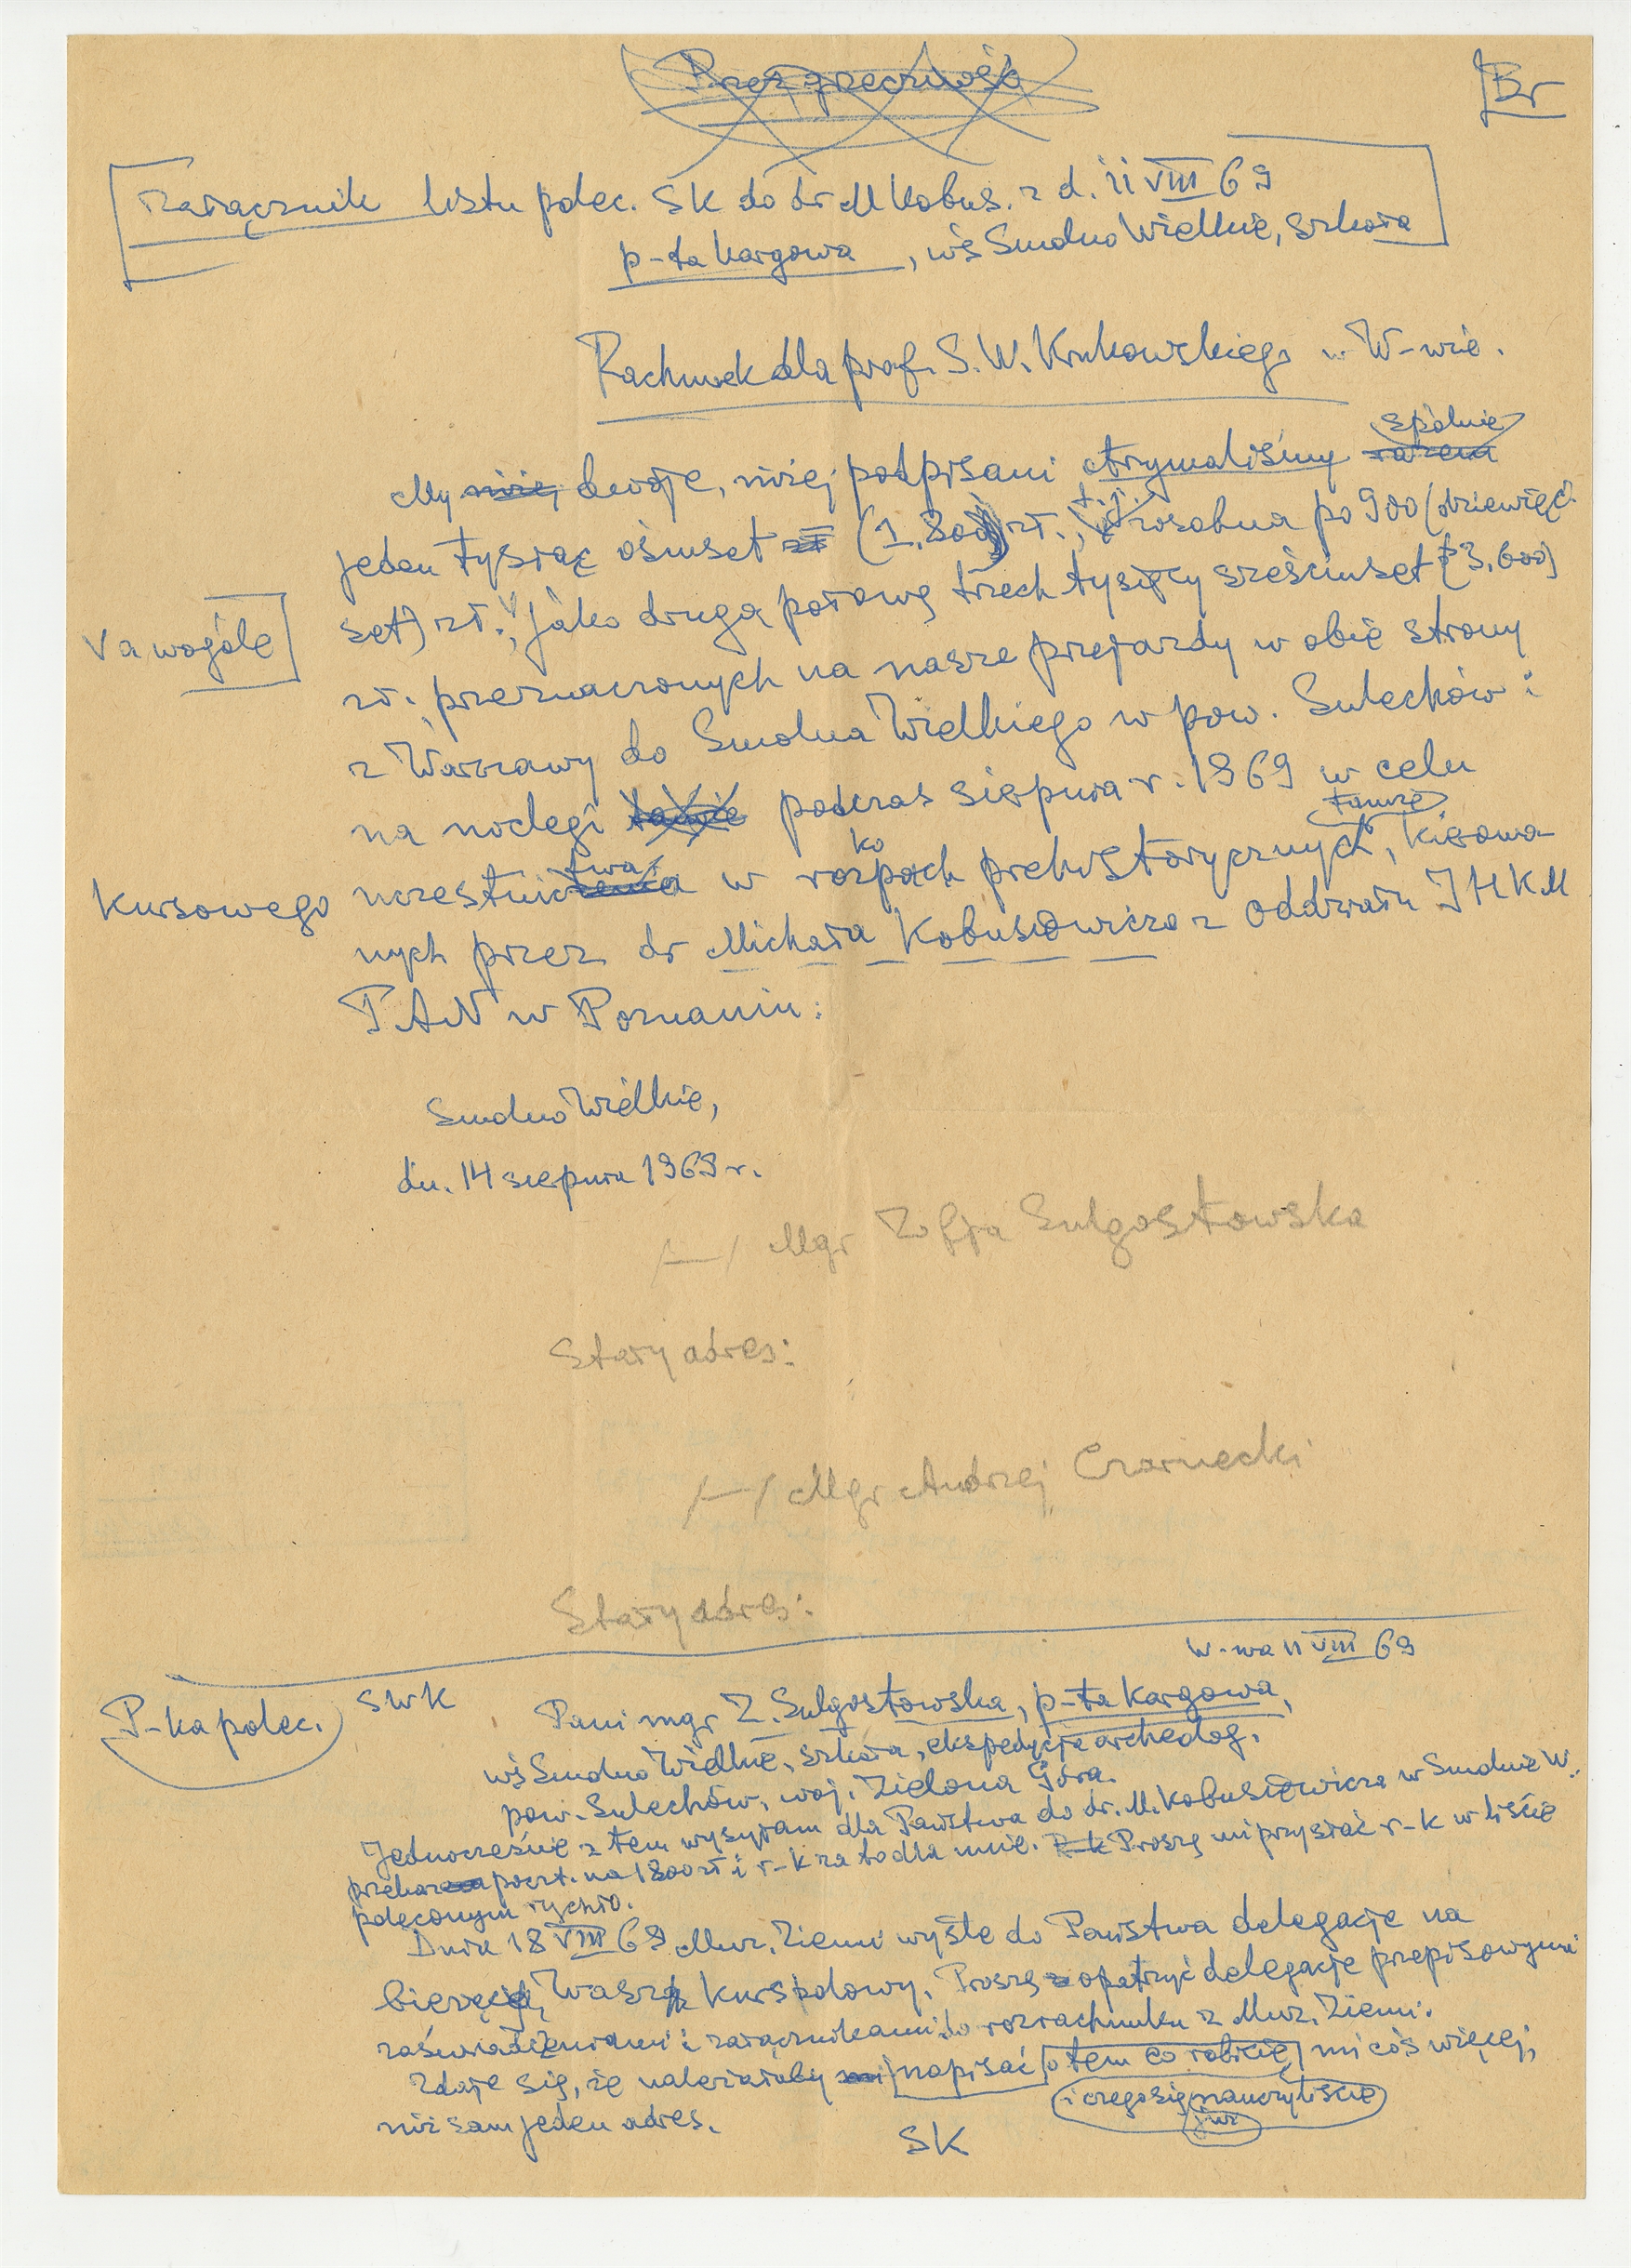 Przez grzeczność
Br
Załącznik listu polec. SK do dr M Kobus. z d. 11 VIII 69
p-ta Kargowa, wś Smolno Wielkie, szkoła
Rachunek dla prof. S. W. Krukowskiego w W-wie.
spólnie
My niżej dwoje, niżej podpisani otrzymaliśmy razem
jeden tysiąc ośmset zł (1.800) zł., t.j. z osobna po 900 (dziewięć-
set) zł., jako drugą połowę trzech tysięcy sześciuset (3.600)
V a wogóle
zł., przeznaczonych na nasze przejazdy w obie strony
z Warszawy do Smolna Wielkiego w pow. Sulechów i
na noclegi tamże podczas sierpnia r. 1969 w celu
tamże
Kursowego uczestnictwa w rozkopach prehistorycznych, kierowa-
nych przez dr Michała Kobusiewicza z Oddziału IHKM
PAN w Poznaniu:
Smolno Wielkie,
dn. 14 sierpnia 1969 r.
/—/ Mgr Zofja Sulgostowska
Stały adres:
/—/ Mgr Andrzej Czarnecki
Stały adres:
W-wa 11 VIII 69
P-ka polec.
SWK
Pani mgr Z. Sulgostowska, p-ta Kargowa,
wś Smolno Wielkie, szkoła, ekspedycje archeolog.
pow. Sulechów, woj. Zielona Góra.
Jednocześnie z tem wysyłam dla Państwa do dr. M. Kobusiewicza w Smolnie W.
przekaz poczt. na 1800 zł i r-k za to dla mnie. R-k Proszę mi przysłać r-k w liście
poleconym rychło.
Dnia 18 VIII 69 Muz. Ziemi wyśle do Państwa delegacje na
bieżący Wasz kurs polowy. Proszę opatrzyć delegacje przepisowymi
zaświadczeniami i załącznikami do rozrachunku z Muz. Ziemi.
Zdaje się, że należałoby napisać o tem co robicie mi coś więcej,
i czego się nauczyliście
już
niż sam jeden adres.
SK